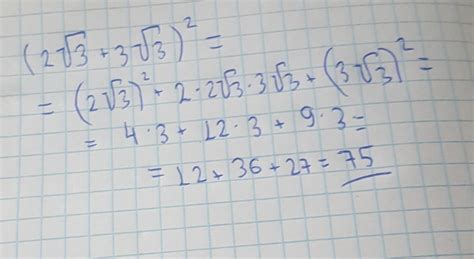 (2√3 + 3√3)² =
= (2√3)² + 2 · 2√3 · 3√3 + (3√3)² =
= 4 · 3 + 12 · 3 + 9 · 3 =
= 12 + 36 + 27 = 75